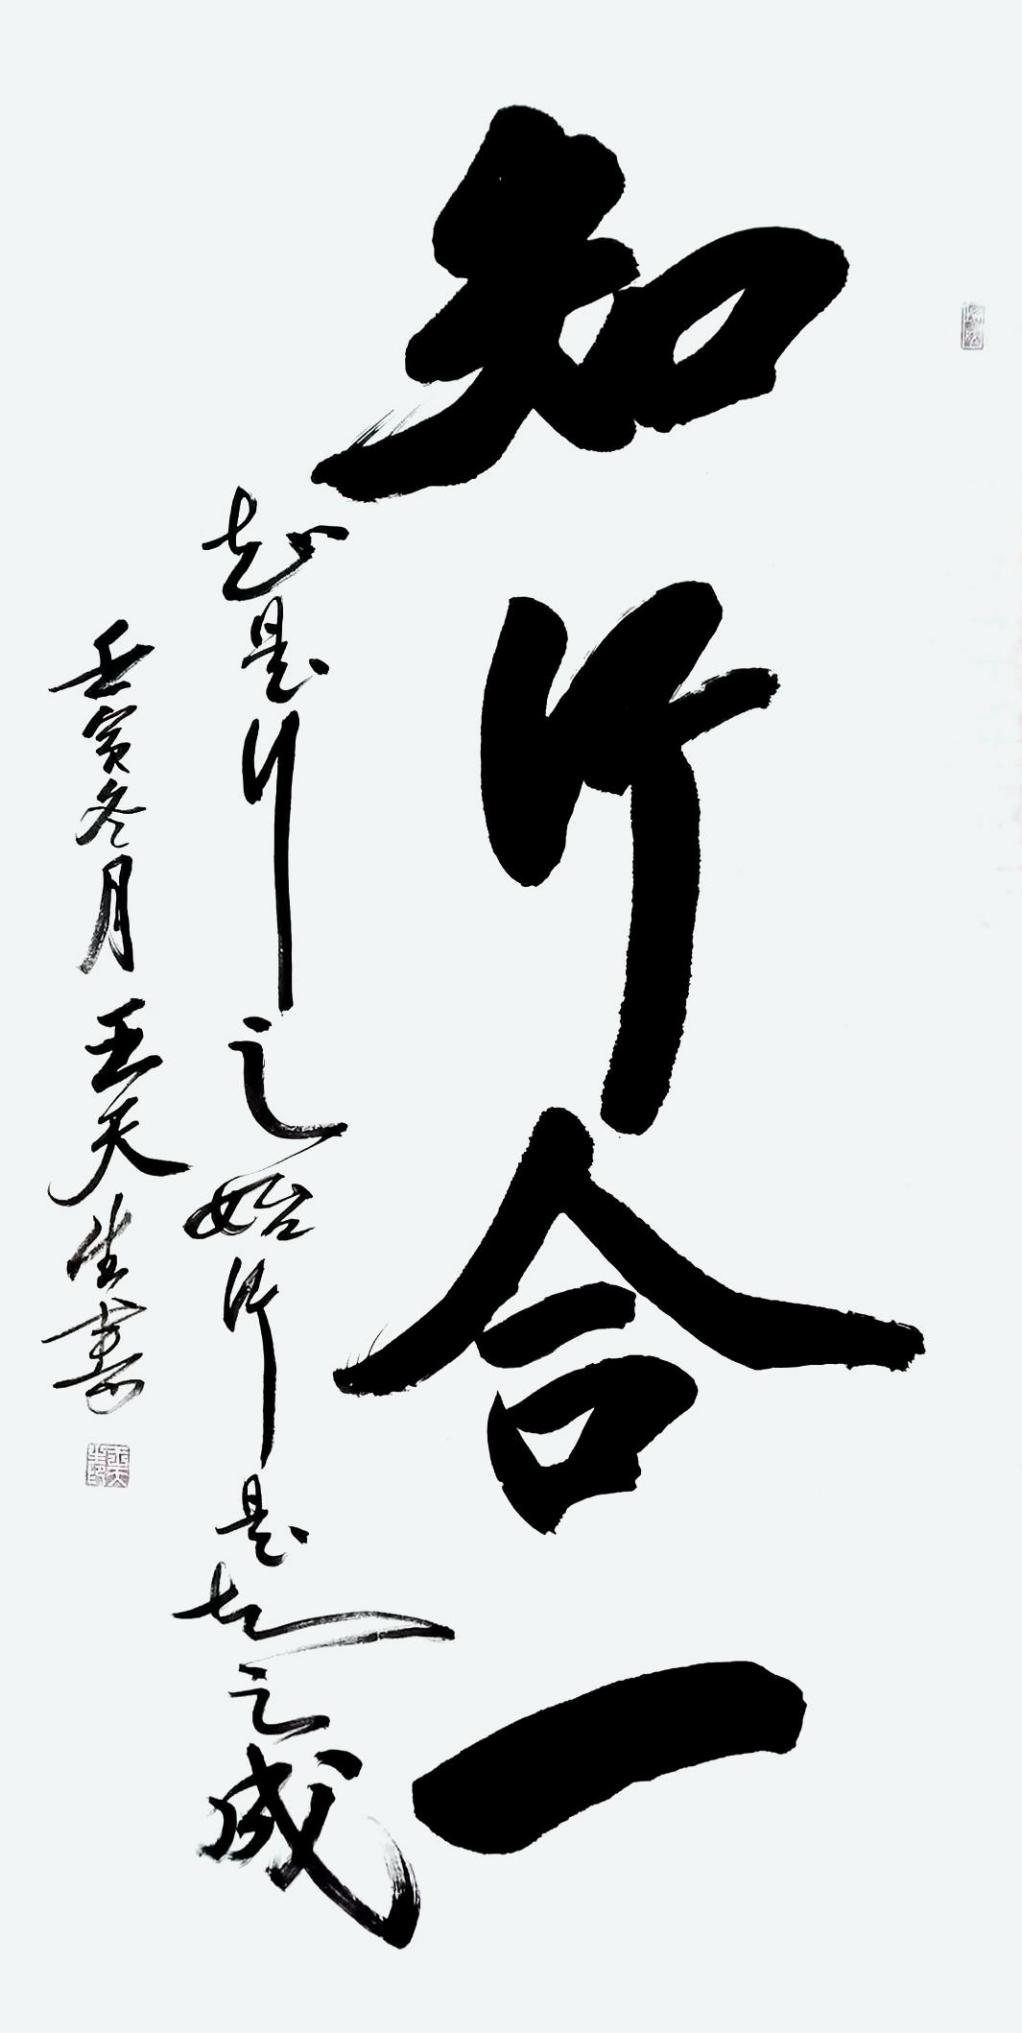 知行合一
知是行之始行是知之成
壬寅冬月王天生書